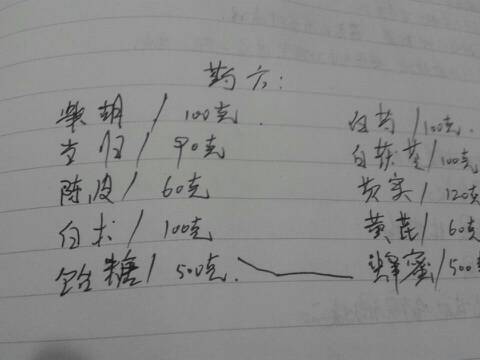 药方：
柴胡 / 100克. 白芍 / 100克.
当归 / 90克 白茯苓 / 100克
陈皮 / 60克 芡实 / 120克
白术 / 100克 黄芪 / 60克
饴糖 / 500克. 蜂蜜 / 500克